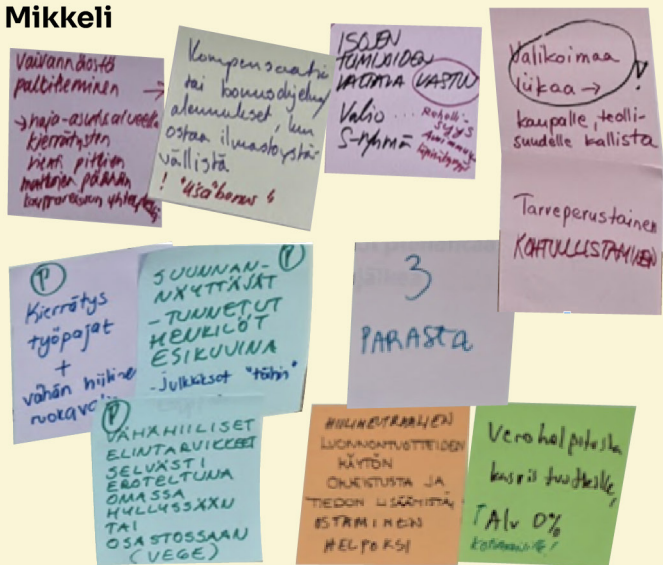 Mikkeli
Vaivannäöstä
palkitseminen →
→ haja-asutusalueella
kierrätysten
vienti pitkien
matkojen päähän
kauppareissun yhteydessä
Kompensaatio
tai bonusohjelma,
alennukset, kun
ostaa ilmastoystä-
vällistä
! "lisä"bonus
ISOJEN
TOIMIJOIDEN
VASTUU
Valio ...
S-ryhmä
Rehelli-
syys
läpinäkyvyys
Valikoimaa
liikaa → !
kaupalle, teolli-
suudelle kallista
Tarveperustainen
KOHTUULLISTAMINEN
P
Kierrätys
työpajat
+
vähän hiiline
ruokava
P
SUUNNAN-
NÄYTTÄJÄT
- TUNNETUT
HENKILÖT
ESIKUVINA
- Julkkikset "tähis"
3
PARASTA
P
VÄHÄHIILISET
ELINTARVIKKEET
SELVÄSTI
EROTELTUNA
OMASSA
HYLLYSSÄÄN
TAI
OSASTOSSAAN
(VEGE)
HIILINEUTRAALIEN
LUONNONTUOTTEIDEN
KÄYTÖN
OHJEISTUSTA JA
TIEDON LISÄÄMISTÄ,
OSTAMINEN
HELPOKSI
Verohelpitusta
kasvistuotteille,
↑ Alv 0%
kotimaisille!